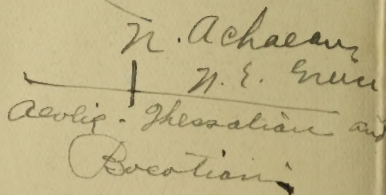 N. Achaean
N. E. Greece
Aeolic - Thessalian and
Boeotian